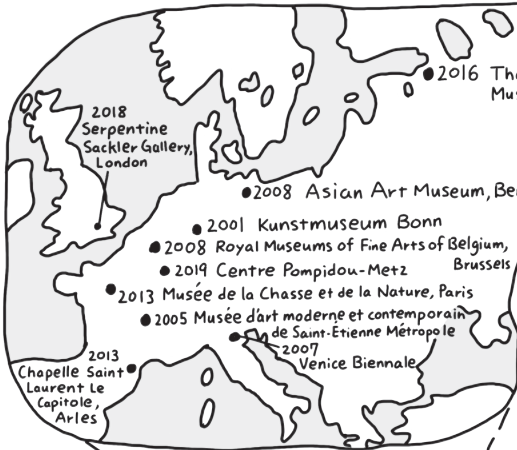 2016 The
Mus
2018
Serpentine
Sackler Gallery,
London
2008 Asian Art Museum, Ber
2001 Kunstmuseum Bonn
2008 Royal Museums of Fine Arts of Belgium,
Brussels
2019 Centre Pompidou-Metz
2013 Musée de la Chasse et de la Nature, Paris
2005 Musée d'art moderne et contemporain
de Saint-Etienne Métropole
2007
Venice Biennale
2013
Chapelle Saint
Laurent Le
Capitole,
Arles